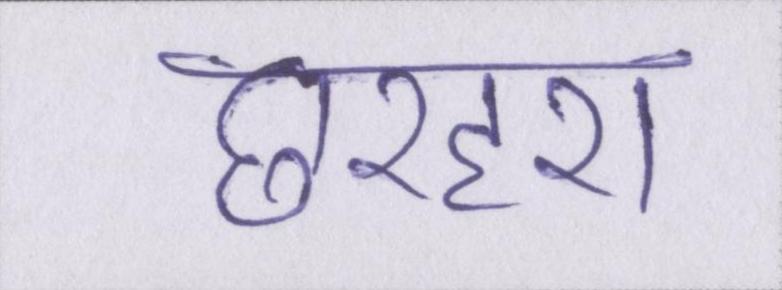 छरहरा